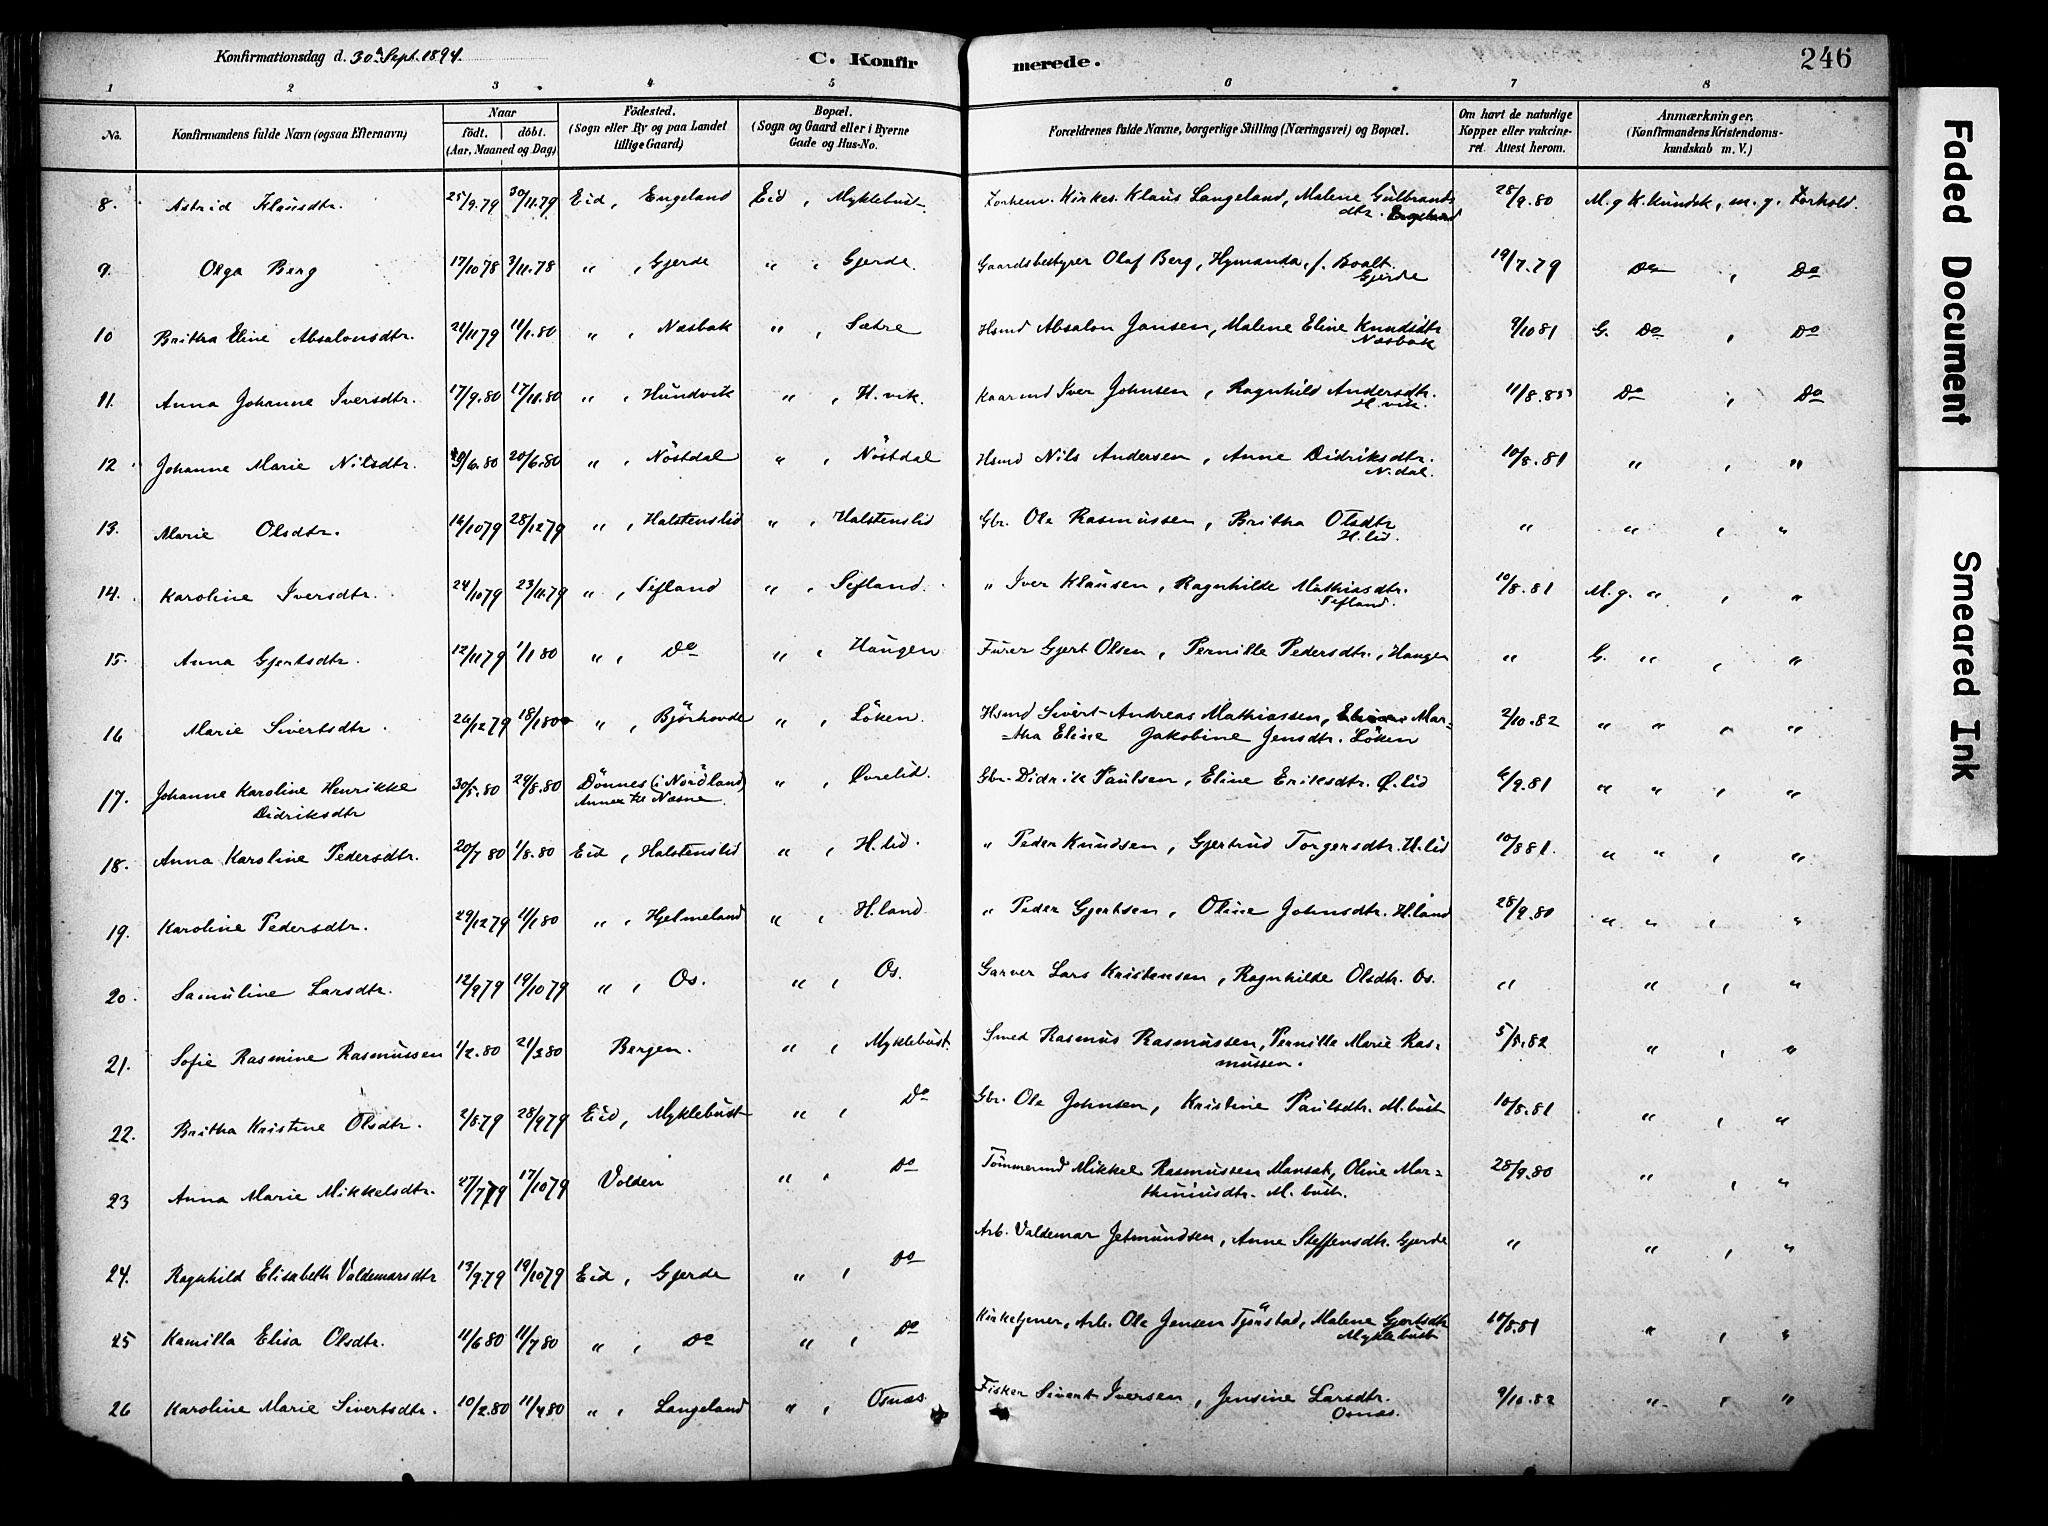 Konfirmationsdag d. 30te Sept. 1894.
C. Konfirmerede.
246
1 2 3 4 5 6 7 8
No.
Konfirmandens fulde Navn (ogsaa Efternavn)
Naar
födt. döbt.
(Aar, Maaned og Dag)
Födested.
(Sogn eller By og paa Landet
tillige Gaard)
Bopæl.
(Sogn og Gaard eller i Byerne
Gade og Hus-No.
Forældrenes fulde Navne, borgerlige Stilling (Næringsvei) og Bopæl.
Om havt de naturlige
Kopper eller vakcine-
ret. Attest herom.
Anmærkninger.
(Konfirmandens Kristendoms-
kundskab m. V.)
8. Astrid Klausdtr. 25/9.79 30/11.79 Eid, Engeland Eid, Myklebust Forhenv. Kirkes. Klaus Langeland, Malene Gulbrands
dtr. Engeland 28/9.80 M. g K. kundsk, m. g. Forhold.
9. Olga Berg 17/10 78 3/11.78 " , Gjerde " , Gjerde. Gaardsbestyrer Olaf Berg, Hymanda, f. Boalt.
Gjerde 19/7.79 Do , Do
10 Britha Eline Absalonsdtr. 21/11 79 11/1.80 " , Næsbak " , Sætre Hsmd Absalon Jansen, Malene Eline Knudsdtr
Næsbak 9/10 81 G. Do , Do
11. Anna Johanne Iversdtr. 17/9.80 17/10.80 " , Hundvik " , H.vik. Kaarmd Iver Johnsen, Ragnhild Andersdtr.
H.vik. 11/8.85 Do , Do
12. Johanne Marie Nilsdtr. /6.80 20/6.80 " , Nöstdal " , Nöstdal Hsmd Nils Andersen, Anne Didriksdtr.
N.dal. 10/8.81 " , "
13. Marie Olsdtr. 16/10 79 28/12 79 " , Halstenslid " , Halstenslid Gbr. Ole Rasmussen, Britha Olsdtr
H.lid. " " , "
14. Karoline Iversdtr. 24/10 79 23/11.79 " , Sefland " , Sefland. " Iver Klausen, Ragnhilde Mathiasdtr.
Sefland. 10/8.81 M. g. " , "
15. Anna Gjertsdtr. 12/11 79 1/1 80 " , Do " , Haugen Furer Gjert Olsen, Pernille Pedersdtr., Haugen " G. " , "
16 Marie Sivertsdtr. 26/12 79 18/1 80 " , Björhovde " , Löken. Hsmd Sivert Andreas Mathiassen, Mar-
-tha Eline Jakobine Jensdtr. Löken 2/10.82 " " , "
17. Johanne Karoline Henrikke
Didriksdtr 30/5.80 29/8.80 Dönnes (i Nordland)
Annex til Næsne " , Øvrelid. Gbr. Didrik Paulsen, Eline Eriksdtr. Ø.lid 6/9.81 " " , "
18. Anna Karoline Pedersdtr. 20/7 80 1/8.80 Eid, Halstenslid " , H.lid. " Peder Knudsen, Gjertrud Torgersdtr. H.lid 10/8 81. " " , "
19. Karoline Pedersdtr. 29/12 79 11/1 80 " , Hjelmeland " , H.land. " Peder Gjertsen, Oline Johnsdtr. H.land 28/9.80 " " , "
20. Samuline Larsdtr. 12/9 79 19/10 79 " , Os. " , Os. Garver Lars Kristensen, Ragnhilde Olsdtr. Os. " " , "
21. Sofie Rasmine Rasmussen 1/2.80 21/3 80 Bergen. " , Myklebust. Smed Rasmus Rasmussen, Pernille Marie Ras-
mussen. 5/8.82 " , "
22. Britha Kristine Olsdtr. 2/8 79 28/9 79 Eid, Myklebust " , Do Gbr. Ole Johnsen, Kristine Paulsdtr. M.bust 10/8.81 " , "
23 Anna Marie Mikkelsdtr. 27/7 79 17/10 79 Volden " , Do Tömmermd Mikkel Rasmussen Mansæt, Oline Mar-
thiniusdtr. M.bust. 28/9.80 " , "
24. Ragnhild Elisabeth Valdemarsdtr 13/9 79 19/10 79 Eid, Gjerde " , Do Arb. Valdemar Jetmundsen, Anne Steffensdtr. Gjerde " " , "
25 Kamilla Elisa Olsdtr. 11/6 80 11/7 80 " , Do " , Do Kirketjener, Arb. Ole Jensen Tjönstad, Malene Gjertsdtr
Myklebust 10/8.81 " , "
26 Karoline Marie Sivertsdtr. 10/2.80 11/4 80 " , Langeland " , Osnæs. Fisker Sivert Iversen, Jensine Larsdtr.
Osnæs. 9/10.82 " , "
Faded Document
Smeared Ink